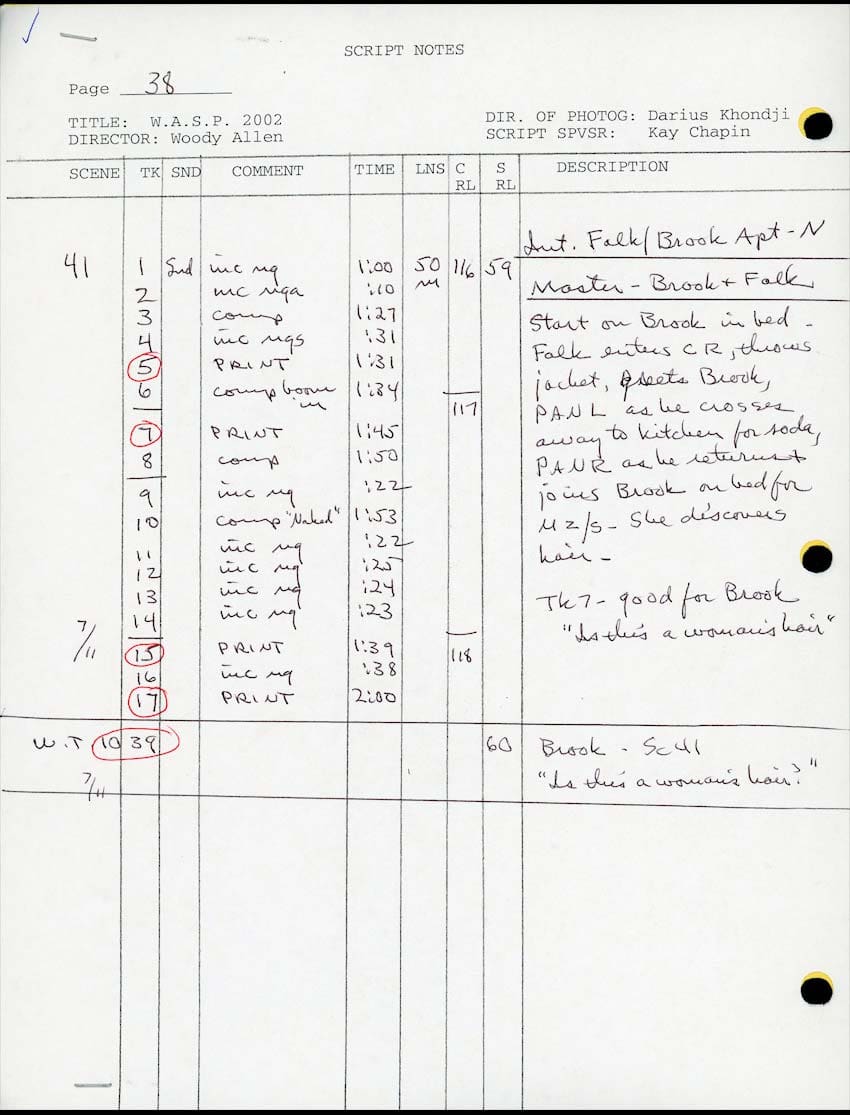 SCRIPT NOTES
Page 38
TITLE: W.A.S.P. 2002
DIR. OF PHOTOG: Darius Khondji
DIRECTOR: Woody Allen
SCRIPT SPVSR: Kay Chapin
SCENE TK SND COMMENT TIME LNS C RL S RL DESCRIPTION
Int. Falk/Brook Apt - N
41 1 Snd inc ng 1:00 50 116 59
Master - Brook + Falk
2 inc nga :10 m
3 comp 1:27
Start on Brook in bed -
4 inc ngs :31
Falk enters CR, throws
5 PRINT 1:31
jacket, greets Brook,
6 comp boom in 1:34
117
PAN L as he crosses
7 PRINT 1:45
away to kitchen for soda,
8 comp 1:50
PAN R as he returns +
9 inc ng :22
joins Brook on bed for
10 comp "Naked" 1:53
M 2/s - She discovers
11 inc ng :22
hair -
12 inc ng :25
13 inc ng :24
Tk 7 - good for Brook
14 inc ng :23
"Is this a woman's hair"
7/11
15 PRINT 1:39 118
16 inc ng :38
17 PRINT 2:00
W.T 1039 60 Brook - Sc 41
7/11
"Is this a woman's hair?"